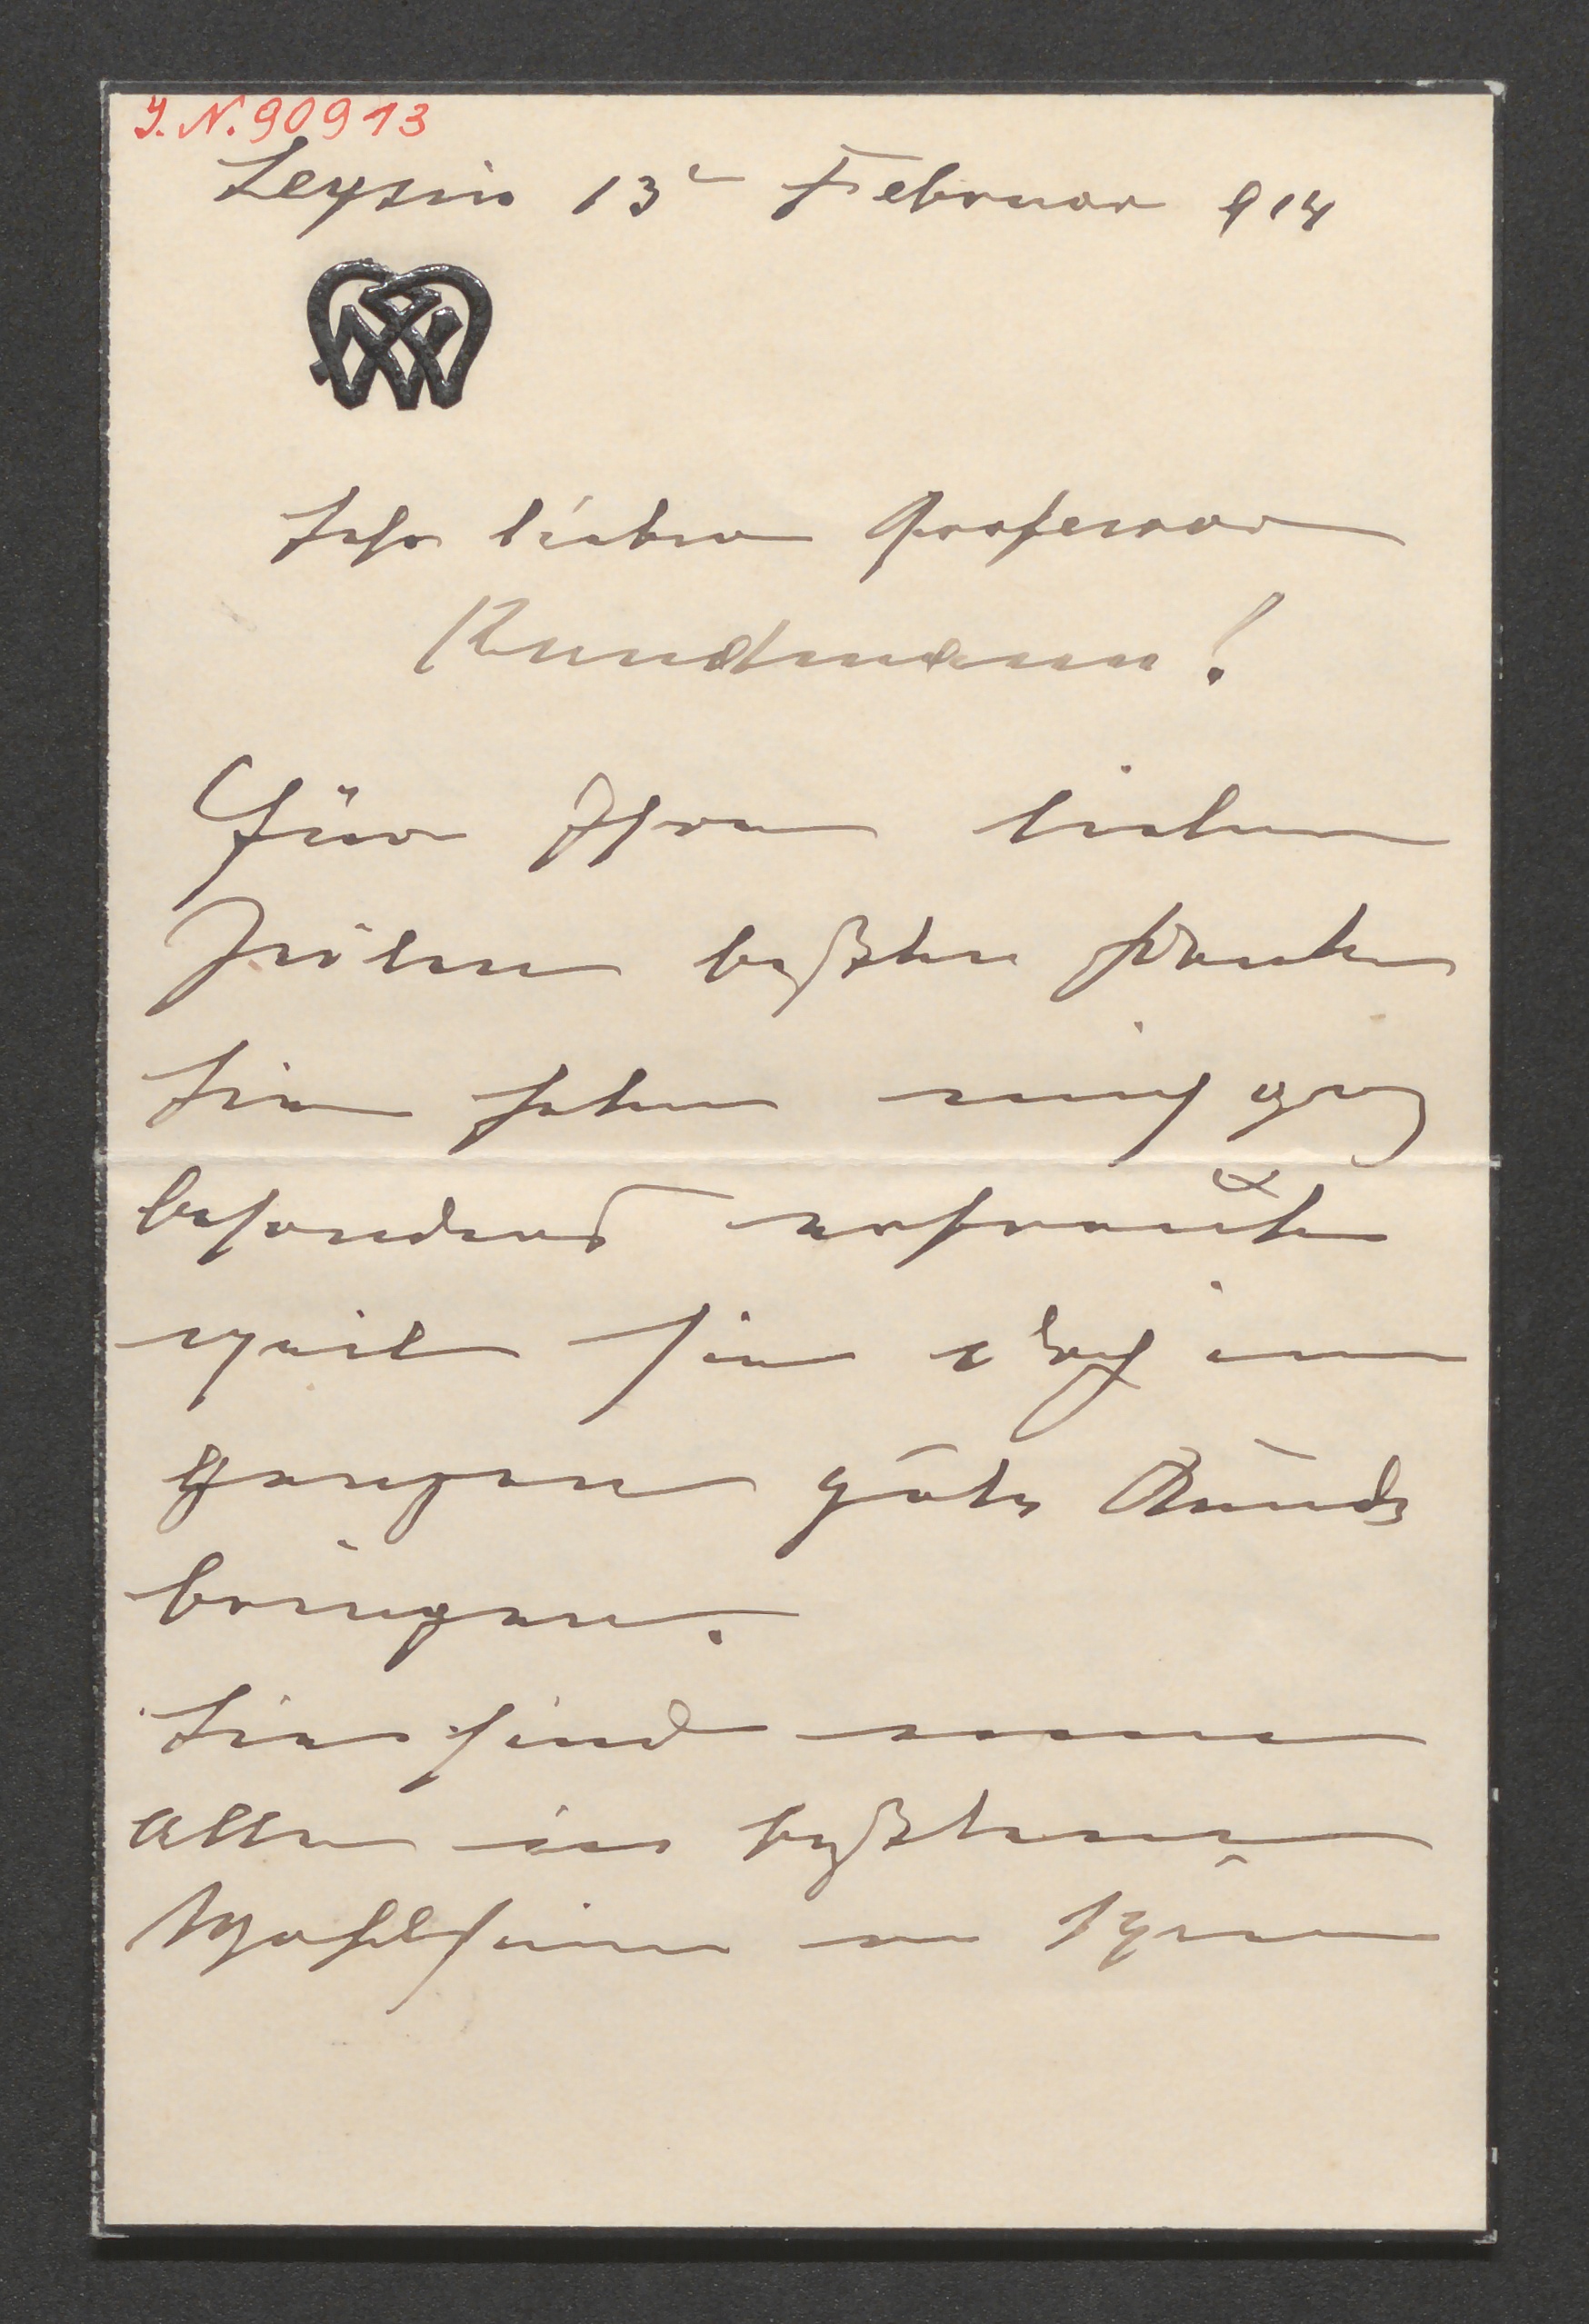 J. N. 90913
Leysin 13t Februar 914
Sehr lieber Professor
Kundmann!
Für Ihren lieben
Zeilen besten Dank
Sie haben mich ganz
besonders erfreut
weil sie doch im
Ganzen gute Kunde
bringen.
Sie sind
Alle in bestem
Wohlsein in Wien